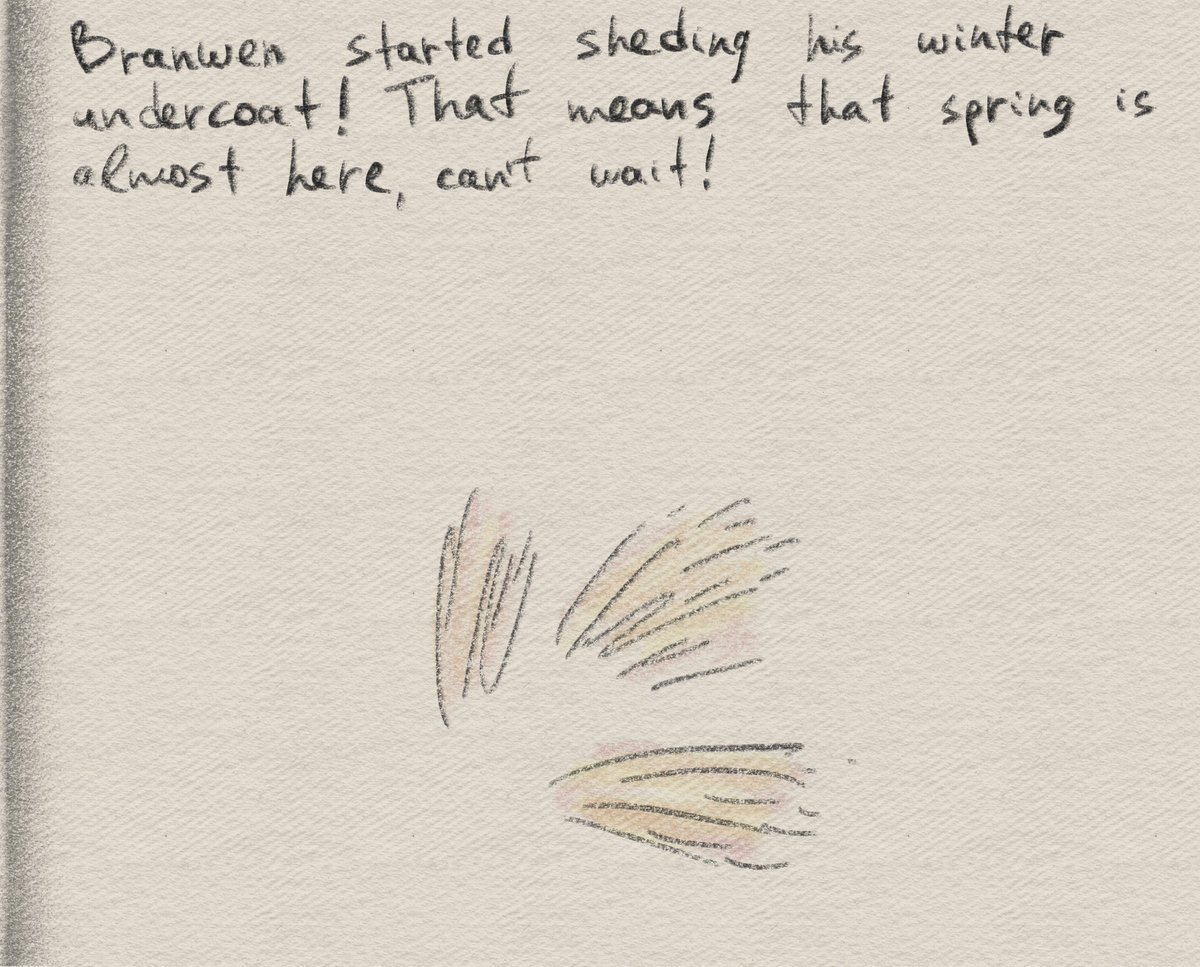 Branwen started sheding his winter
undercoat! That means that spring is
almost here, can't wait!